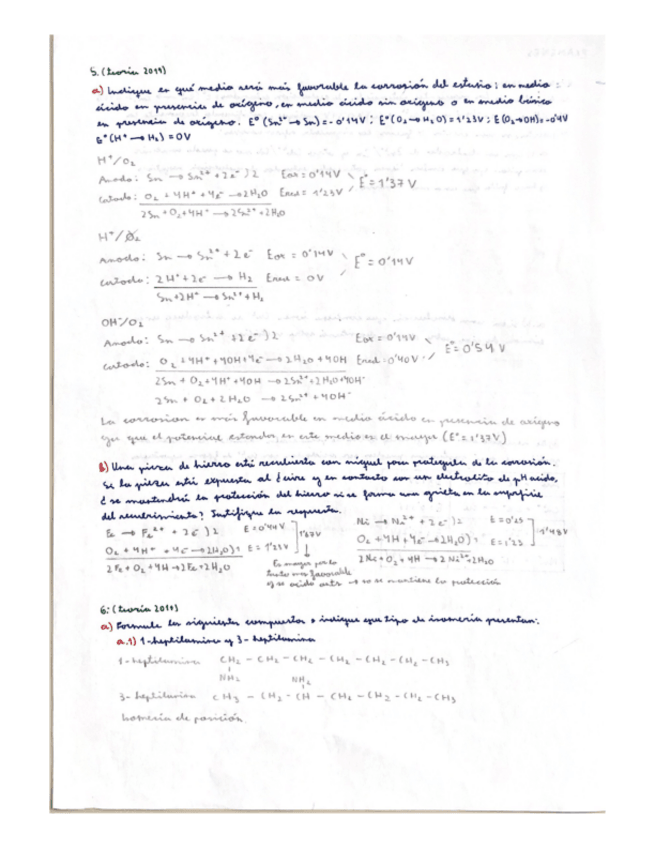 5. (teoría 2019)
a) Indique en qué medio será más favorable la corrosión del estaño: en medio
ácido en presencia de oxígeno, en medio ácido sin oxígeno o en medio básico
en presencia de oxígeno. E°(Sn²⁺→Sn)=-0'14V; E°(O₂→H₂O)=1'23V; E(O₂→OH)=-0'4V
E°(H⁺→H₂)=0V
H⁺/O₂
Anodo: Sn → Sn²⁺ + 2e⁻ )2 Eox=0'14V
E°=1'37 V
Catodo: O₂ + 4H⁺ + 4e⁻ → 2H₂O Ered=1'23V
2Sn + O₂ + 4H⁺ → 2Sn²⁺ + 2H₂O
H⁺/O₂
Anodo: Sn → Sn²⁺ + 2e⁻ Eox = 0'14V
E° = 0'14V
Catodo: 2H⁺ + 2e⁻ → H₂ Ered = 0V
Sn + 2H⁺ → Sn²⁺ + H₂
OH⁻/O₂
Anodo: Sn → Sn²⁺ + 2e⁻ )2 Eox = 0'14V
E°=0'54 V
Catodo: O₂ + 4H⁺ + 4OH + 4e⁻ → 2H₂O + 4OH Ered = 0'40V
2Sn + O₂ + 4H⁺ + 4OH → 2Sn²⁺ + 2H₂O + 4OH⁻
2Sn + O₂ + 2H₂O → 2Sn²⁺ + 4OH⁻
La corrosion es más favorable en medio ácido en presencia de oxígeno
ya que el potencial estandar en este medio es el mayor (E°=1'37V)
b) Una pieza de hierro está recubierta con níquel para protegerla de la corrosión.
Si la pieza está expuesta al aire y en contacto con un electrolito de pH ácido,
¿se mantendrá la protección del hierro si se forma una grieta en la superficie
del recubrimiento? Justifique la respuesta.
Fe → Fe²⁺ + 2e⁻ )2 E=0'44V
O₂ + 4H⁺ + 4e⁻ → 2H₂O) E = 1'23V
2Fe + O₂ + 4H → 2Fe + 2H₂O
Ni → Ni²⁺ + 2e⁻ )2 E=0'25
1'48V
O₂ + 4H + 4e⁻ → 2H₂O) E=1'23
2Ni + O₂ + 4H → 2Ni²⁺ + 2H₂O
Es mayor por lo
tanto más favorable
y se oxida antes → no se mantiene la protección
6. (teoría 2019)
a) Formule los siguientes compuestos e indique que tipo de isomería presentan:
a.1) 1-heptilamina y 3-heptilamina
1-heptilamina CH₂ - CH₂ - CH₂ - CH₂ - CH₂ - CH₂ - CH₃
NH₂
NH₂
3-heptilamina CH₃ - CH₂ - CH - CH₂ - CH₂ - CH₂ - CH₃
Isomería de posición.